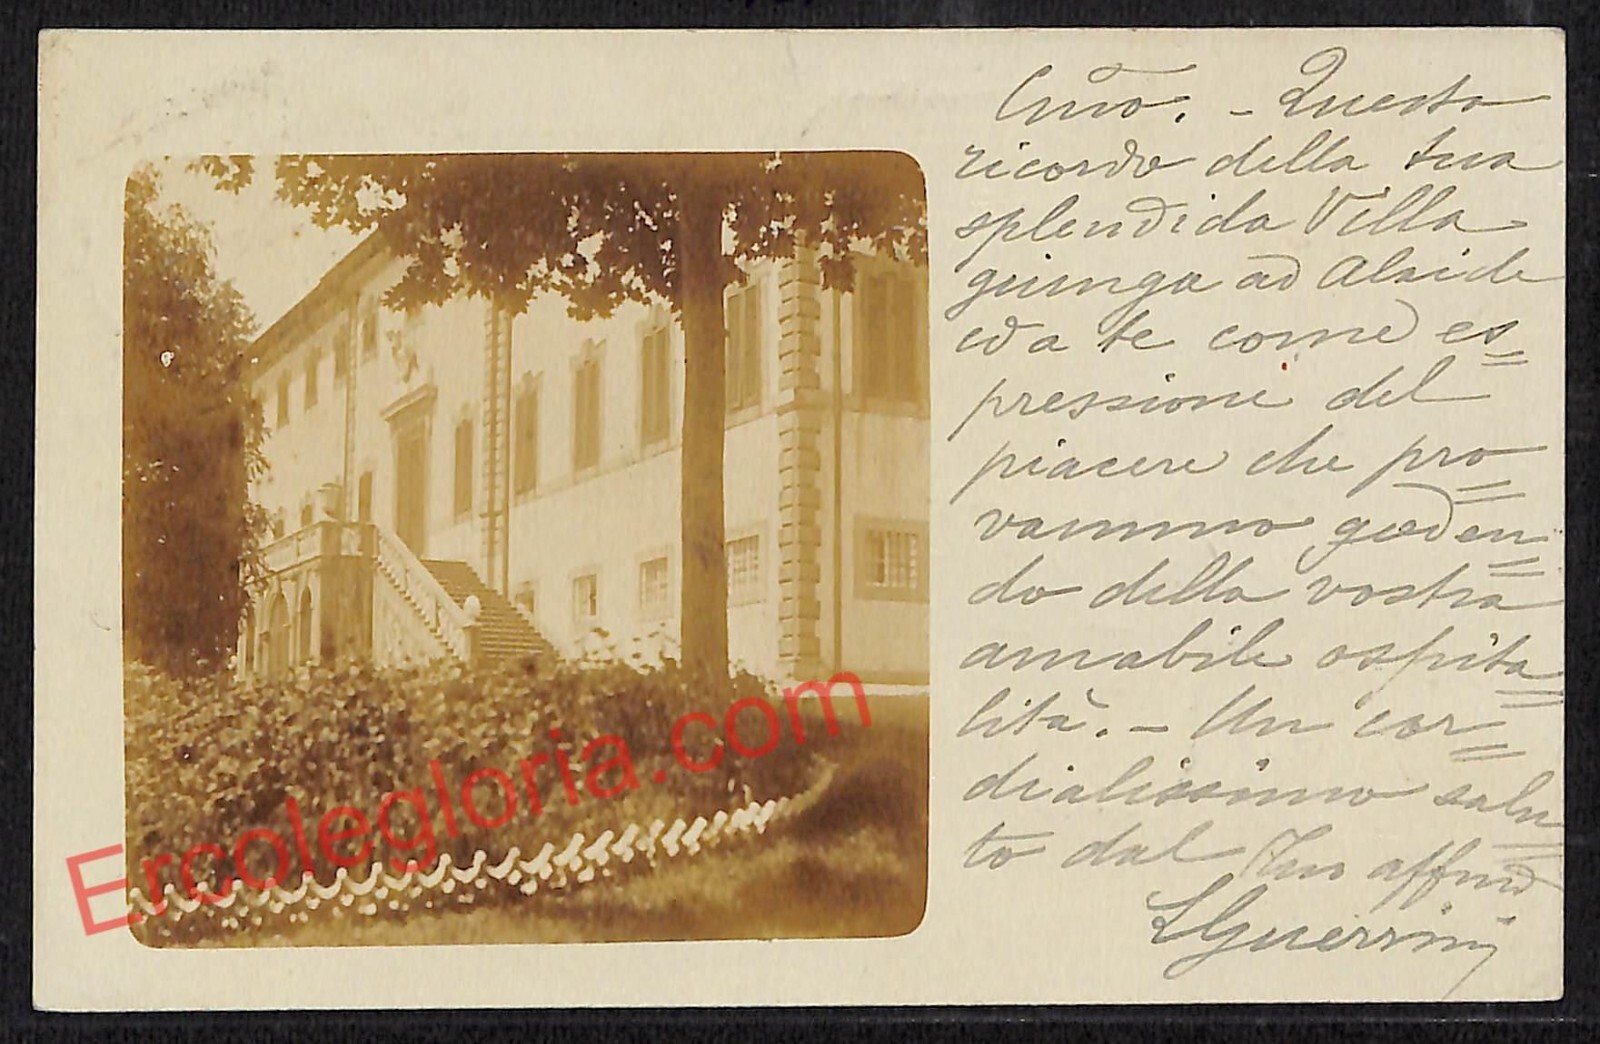 Cmo. - Questo
ricordo della tua
splendida Villa
giunga ad Alaide
ed a te come es=
pressione del
piacere che pro=
vammo goden=
do della vostra
amabile ospita=
lità. - Un cor=
dialissimo salu=
to dal Tuo affmo
LGuerrini
Ercolegloria.com